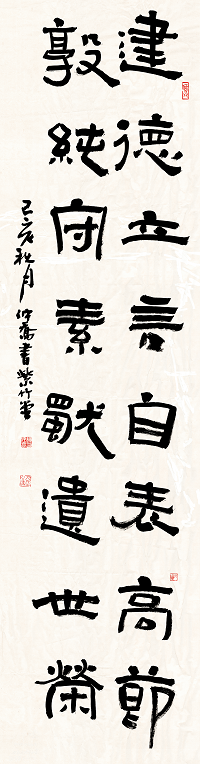 建德立言自表高節
敦純守素默遺世榮
己亥秋月仲書紫竹堂